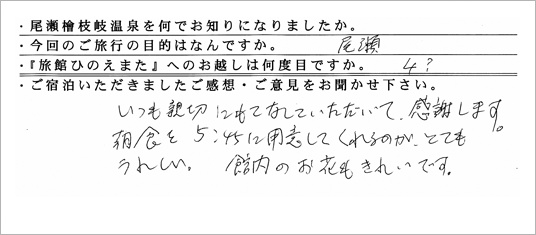 ・尾瀬檜枝岐温泉を何でお知りになりましたか。
・今回のご旅行の目的はなんですか。 尾瀬
・『旅館ひのえまた』へのお越しは何度目ですか。 4？
・ご宿泊いただきましたご感想・ご意見をお聞かせ下さい。
いつも親切にもてなしていただいて、感謝します。
朝食を5:45に用意してくれるのが、とても
うれしい。 館内のお花もきれいです。